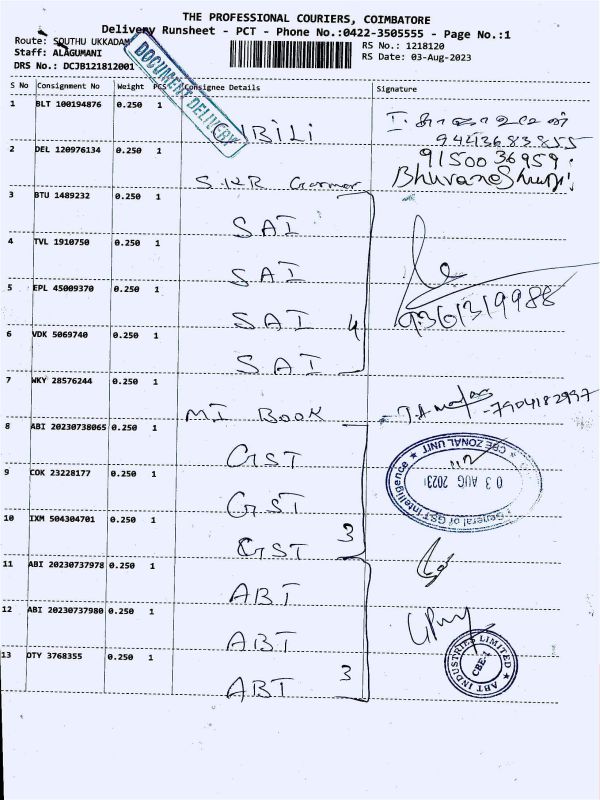 THE PROFESSIONAL COURIERS, COIMBATORE
Delivery Runsheet - PCT - Phone No.:0422-3505555 - Page No.:1
Route: SOUTHU UKKADAM
Staff: ALAGUMANI
DRS No.: DCJB121812001
RS No.: 1218120
RS Date: 03-Aug-2023
DOCUMENT DELIVERY
S No Consignment No Weight PCS Consignee Details Signature
1 BLT 100194876 0.250 1
9443683855
2 DEL 120976134 0.250 1 S.KR
9150036959
Bhuvaneshwari
3 BTU 1489232 0.250 1 SAI
4 TVL 1910750 0.250 1 SAI
5 EPL 45009370 0.250 1 SAI 4
9361319988
6 VDK 5069740 0.250 1 SAI
7 WKY 28576244 0.250 1 MI BOOK
-7904182997
8 ABI 20230738065 0.250 1 GST
9 COK 23228177 0.250 1 GST
10 IXM 504304701 0.250 1 GST 3
General of GST Intelligence ★ CBE ZONAL UNIT ★
03 AUG 2023
11 ABI 20230737978 0.250 1 ABT
12 ABI 20230737980 0.250 1 ABT
13 OTY 3768355 0.250 1 ABT 3
ABT INDUSTRIES LIMITED ★
CBE-1